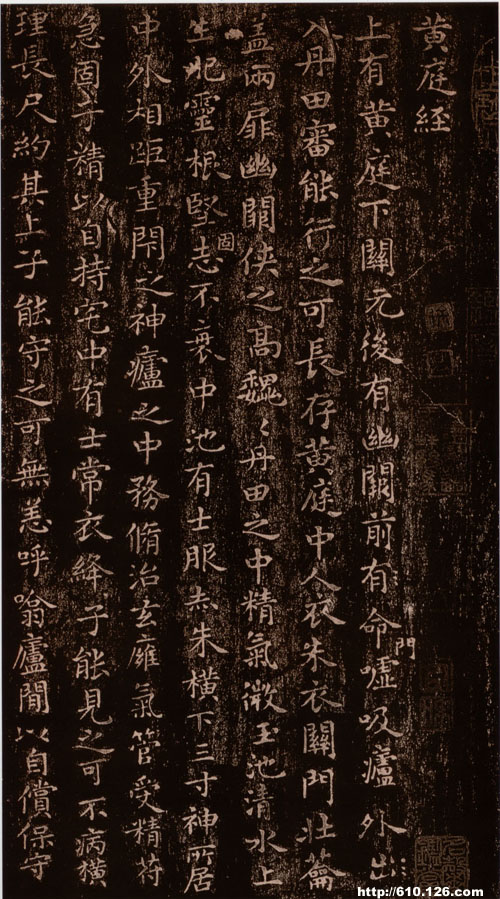 黄庭經
上有黄庭下關元後有幽闕前有命門嘘吸廬外出
入丹田審能行之可長存黄庭中人衣朱衣關門壯籥
盖兩扉幽闕侠之高魏〻丹田之中精氣微玉池清水上
生肥靈根堅固志不衰中池有士服赤朱横下三寸神所居
中外相距重閇之神廬之中務脩治玄㢕氣管受精符
急固子精以自持宅中有士常衣絳子能見之可不病横
理長尺約其上子能守之可無恙呼噏廬閒以自償保守
http://610.126.com/